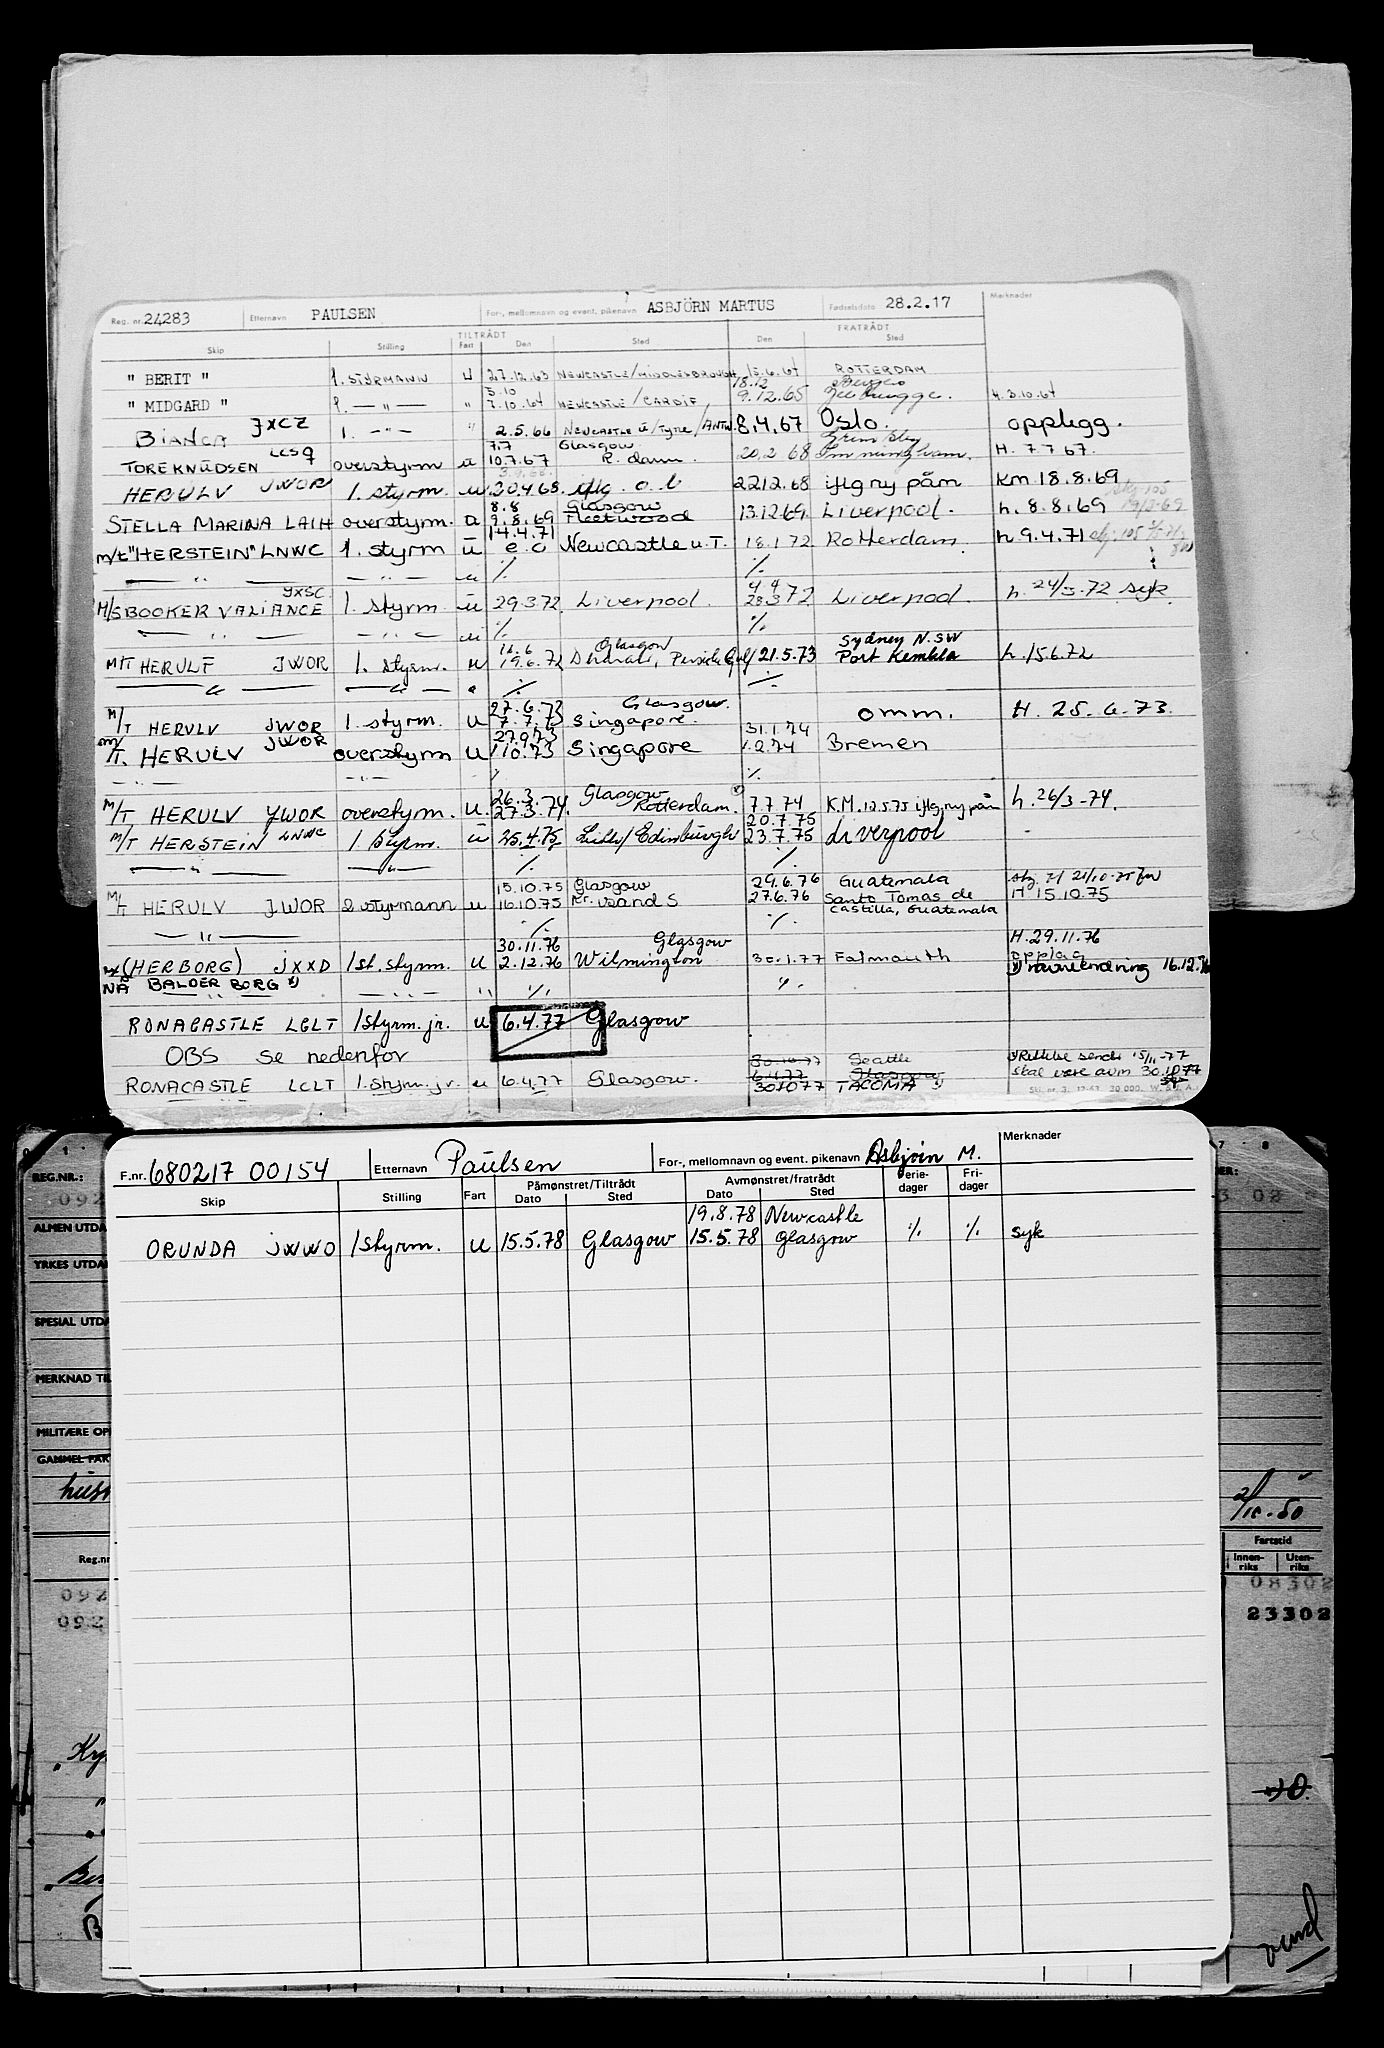 Reg. nr. 24283 Etternavn PAULSEN For-, mellomnavn og event. pikenavn ASBJÖRN MARTUS Fødselsdato 28.2.17 Merknader
TILTRÅDT FRATRÅDT
Skip Stilling Fart Den Sted Den Sted
" BERIT " 1. STYRMANN U 27.12.63 NEWCASTLE/MIDDLESBROUGH 15.6.64 ROTTERDAM
5.10 18.12
" MIDGARD " 1. — " — " 7.10.64 NEWCASTLE/CARDIF 9.12.65 Zeebrugge. H. 3.10.64
BIANCA JXCZ 1. — " — " 2.5.66 NEWCASTLE U/TYNE/ANTW. 8.4.67 Oslo. opplegg.
7.7 Glasgow
TORE KNUDSEN LCSQ overstyrm u 10.7.67 R.dam. 20.2 68 Immingham. H. 7.7 67.
HERULV JWOR 1. styrm. u 30.4.68. iflg. o.l 22.12.68 iflg ny påm km 18.8.69
8.8 Glasgow
STELLA MARINA LAIH overstyrm. u 9.8.69 Fleetwood 13.12.69. Liverpool. h. 8.8.69
14.4.71
m/t "HERSTEIN" LNWC 1. styrm u e.o Newcastle u.T. 18.1 72 Rotterdam. h 9.4.71
— " — — " — u ./. ./.
JXSC 4 4
M/S BOOKER VALIANCE 1. styrm u 29.3.72. Liverpool. 28.3 72 Liverpool. h. 24/3-72 syk
— " — — " — u ./. ./.
16.6 Glasgow Sydney N.SW
M/T HERULF JWOR 1. styrm. u 19.6.72 Dharali, Persiske Gulf 21.5.73 Port Kembla h. 15.6.72
— " — — " — " ./. ./.
27.6.73 Glasgow.
M/T HERULV JWOR 1. styrm. u 7.7.73 Singapore. omm. H. 25.6.73.
27.9.73 31.1.74
m/T. HERULV JWOR overstyrm u 1.10.73 Singapore 1.2.74 Bremen
— " — — " — ./. ./.
26.3. Glasgow
M/T HERULV JWOR overstyrm. u. 27.3.74. Rotterdam. 7.7.74 K.M. 12.5.75 iflg ny påm h. 26/3-74.
20.7.75
M/T HERSTEIN LNWC 1 styrm. u 25.4.75 Leith/Edinburgh 23.7.75 Liverpool
— " — — " — ./. ./.
15.10.75 Glasgow 29.6.76 Guatemala
M/T HERULV JWOR 2. styrmann u 16.10.75 Kr.sand S 27.6.76 Santo Tomas de H 15.10.75
— " — ./. ./. Castilla, Guatemala
30.11.76 Glasgow H. 29.11.76
(HERBORG) JXXD 1st. styrm. u 2.12.76 Wilmington 30.1.77 Falmouth opplag
NÅ BALDER BORG 1) — " — " ./. ./. 1) navneendring 16.12.76
RONACASTLE LCLT 1styrm. jr. u 6.4.77 Glasgow
OBS se nedenfor 30.10.77 Seattle 1) Rettelse sendt 15/11-77
6.4.77 Glasgow skal være avm 30.10.77
RONACASTLE LCLT 1. styrm. jr. u 6.4.77 Glasgow. 30.10.77 TACOMA 1)
F.nr. 680217 00154 Etternavn Paulsen For-, mellomnavn og event. pikenavn Asbjørn M. Merknader
Skip Stilling Fart Påmønstret/Tiltrådt Dato Sted Avmønstret/fratrådt Dato Sted Feriedager Fridager
19.8.78 Newcastle
ORUNDA JWWO 1styrm. u 15.5.78 Glasgow 15.5.78 Glasgow ./. ./. syk
REG.NR.:
092
ALMEN UTDA
YRKES UTDA
SPESIAL UTDA
MERKNAD TIL
MILITÆRE OPP
GAMMEL FART
2/10-50
Fartstid
Reg.nr Innen-riks Uten-riks
092 08302
092 23302